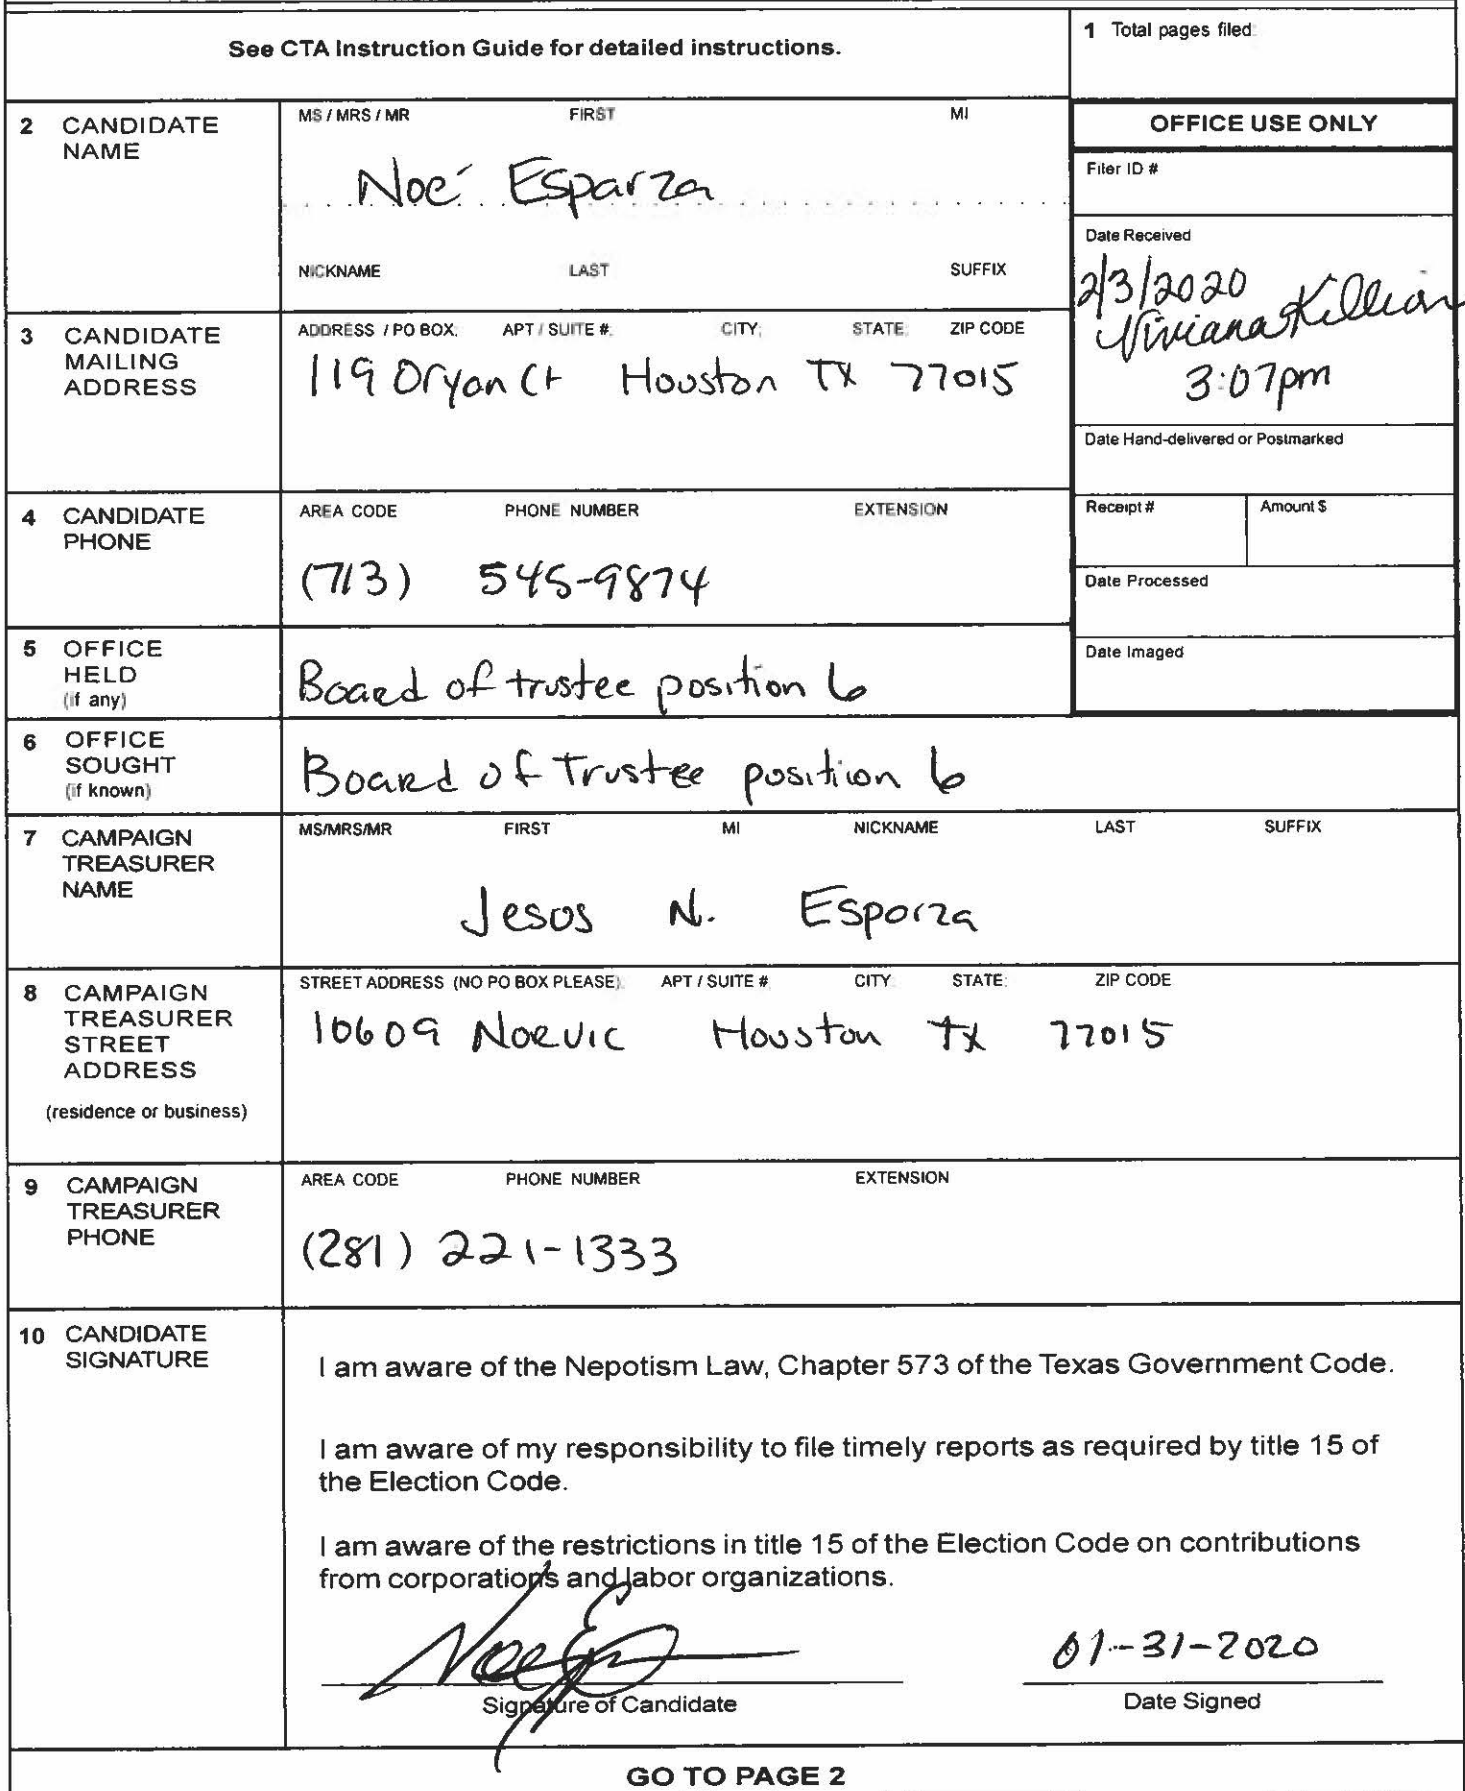 See CTA Instruction Guide for detailed instructions.
1 Total pages filed:
2 CANDIDATE NAME
MS / MRS / MR FIRST MI
Noé Esparza
NICKNAME LAST SUFFIX
OFFICE USE ONLY
Filer ID #
Date Received
2/3/2020
Viviana Killian
3:07pm
3 CANDIDATE MAILING ADDRESS
ADDRESS / PO BOX; APT / SUITE #; CITY; STATE; ZIP CODE
119 Oryan Ct Houston TX 77015
Date Hand-delivered or Postmarked
4 CANDIDATE PHONE
AREA CODE PHONE NUMBER EXTENSION
(713) 545-9874
Receipt # Amount $
Date Processed
Date Imaged
5 OFFICE HELD (if any)
Board of trustee position 6
6 OFFICE SOUGHT (if known)
Board of Trustee position 6
7 CAMPAIGN TREASURER NAME
MS/MRS/MR FIRST MI NICKNAME LAST SUFFIX
Jesus N. Esparza
8 CAMPAIGN TREASURER STREET ADDRESS (residence or business)
STREET ADDRESS (NO PO BOX PLEASE); APT / SUITE # CITY; STATE; ZIP CODE
10609 Norvic Houston TX 77015
9 CAMPAIGN TREASURER PHONE
AREA CODE PHONE NUMBER EXTENSION
(281) 221-1333
10 CANDIDATE SIGNATURE
I am aware of the Nepotism Law, Chapter 573 of the Texas Government Code.
I am aware of my responsibility to file timely reports as required by title 15 of
the Election Code.
I am aware of the restrictions in title 15 of the Election Code on contributions
from corporations and labor organizations.
01-31-2020
Signature of Candidate Date Signed
GO TO PAGE 2